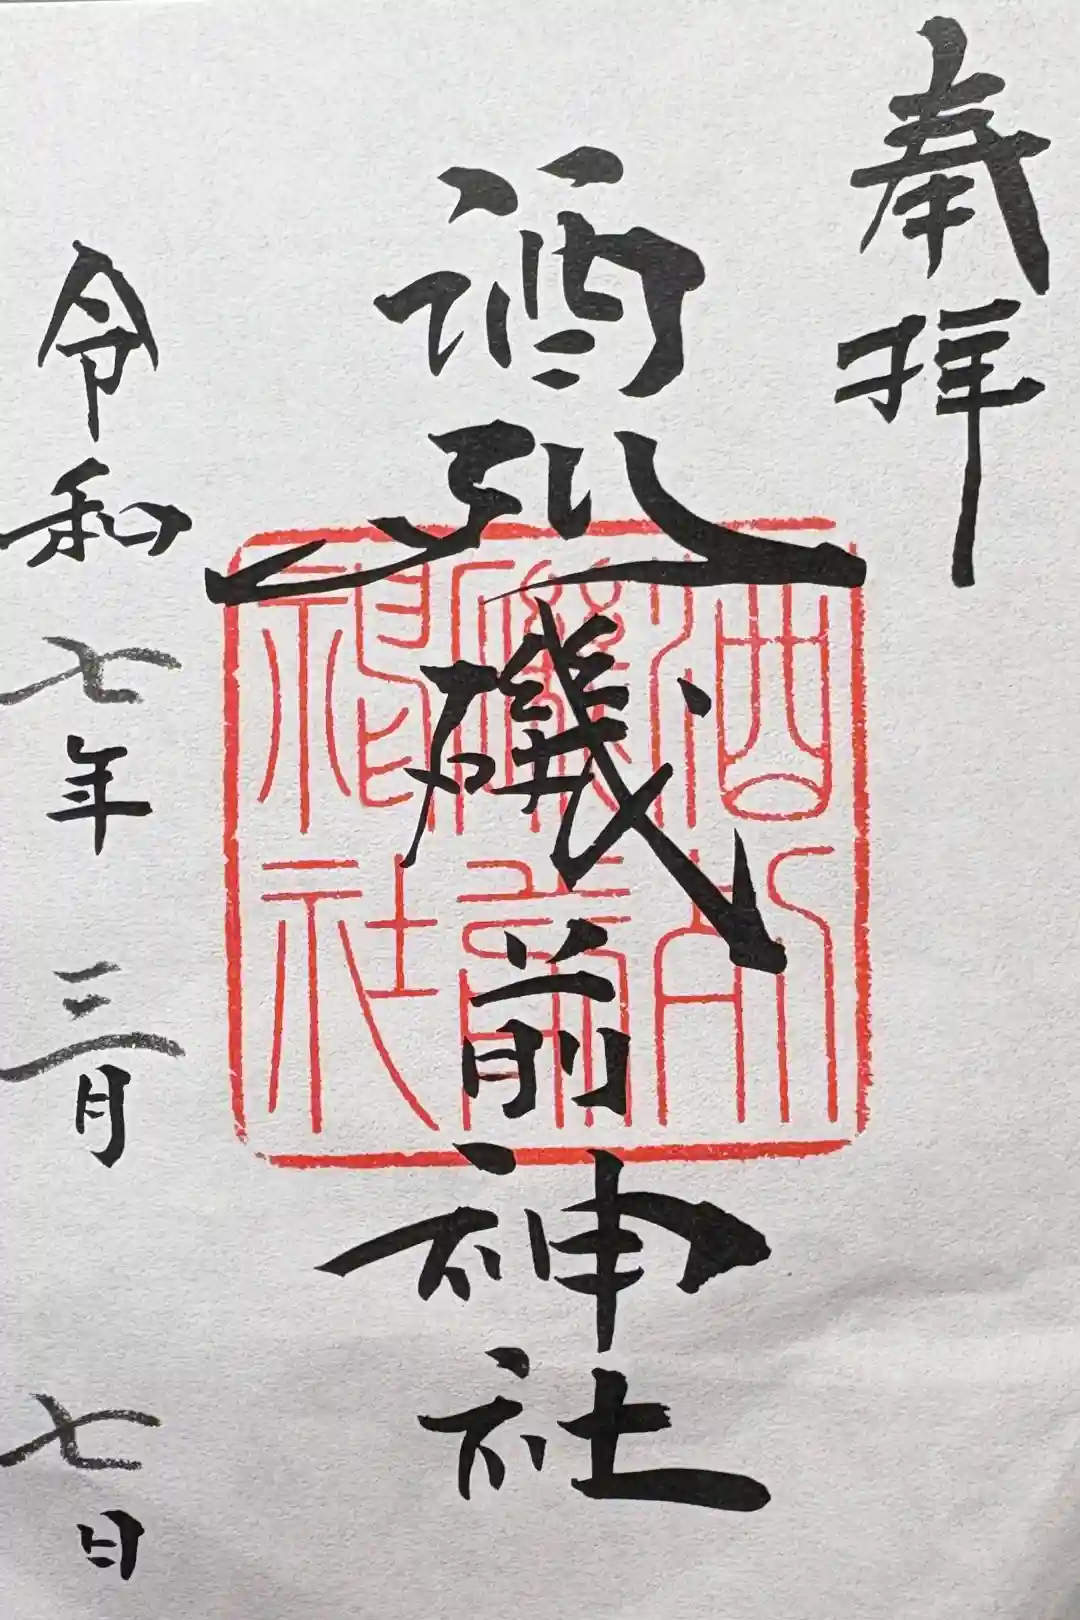 奉拝
酒列磯前神社
令和七年三月七日
酒列
磯前
神社